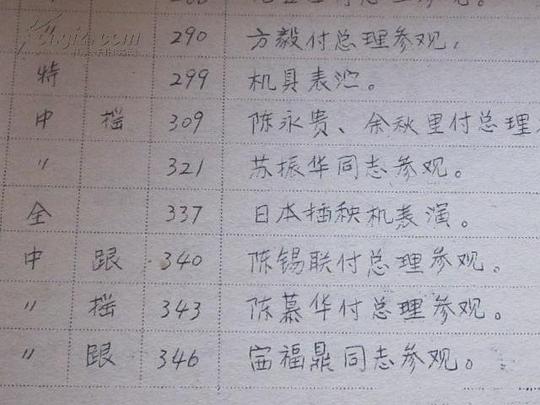 〃 〃 290 方毅付总理参观。
特 299 机具表演。
中 摇 309 陈永贵、余秋里付总理
〃 321 苏振华同志参观。
全 337 日本插秧机表演。
中 跟 340 陈锡联付总理参观。
〃 摇 343 陈慕华付总理参观。
〃 跟 346 宙福鼎同志参观。